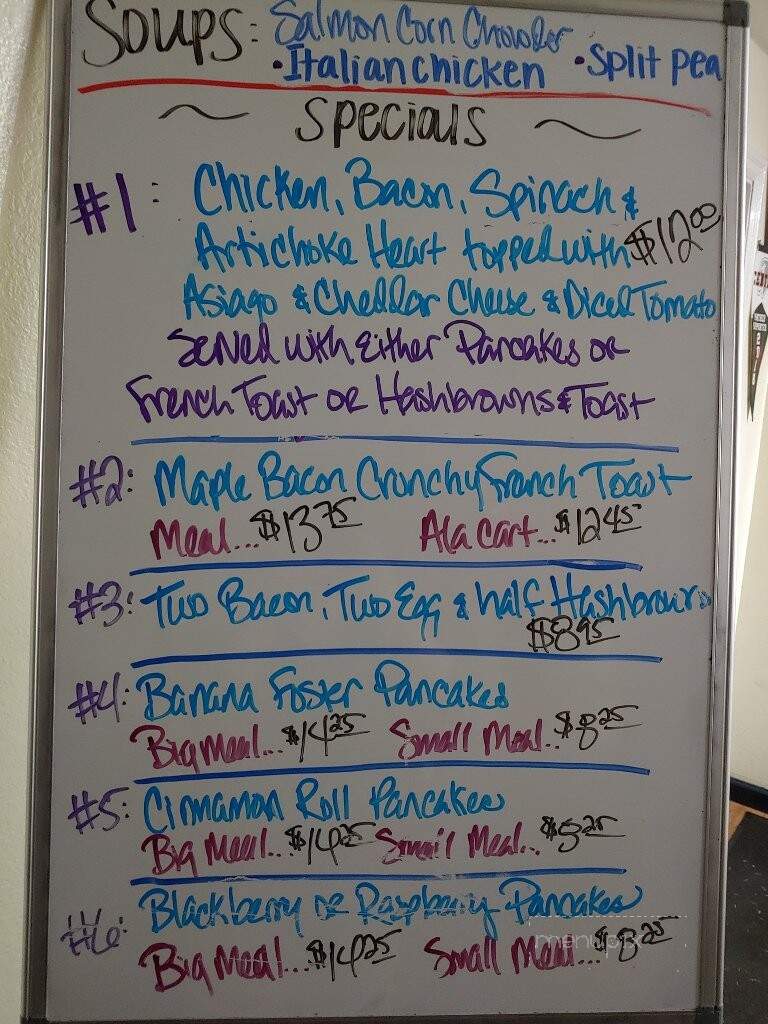 Soups: Salmon Corn Chowder
• Italian chicken • Split pea
~ Specials ~
#1: Chicken, Bacon, Spinach &
Artichoke Heart topped with $12.00
Asiago & Cheddar Cheese & Diced Tomato
Served with Either Pancakes or
French Toast or Hashbrowns & Toast
#2: Maple Bacon Crunchy French Toast
Meal... $13.75 Ala cart... $12.45
#3: Two Bacon, Two Egg & half Hashbrowns
$8.95
#4: Banana Foster Pancakes
Big Meal... $14.25 Small Meal.. $8.25
#5: Cinnamon Roll Pancakes
Big Meal... $14.25 Small Meal... $8.25
#6: Blackberry or Raspberry Pancakes
Big Meal... $14.25 Small Meal... $8.25
menupix